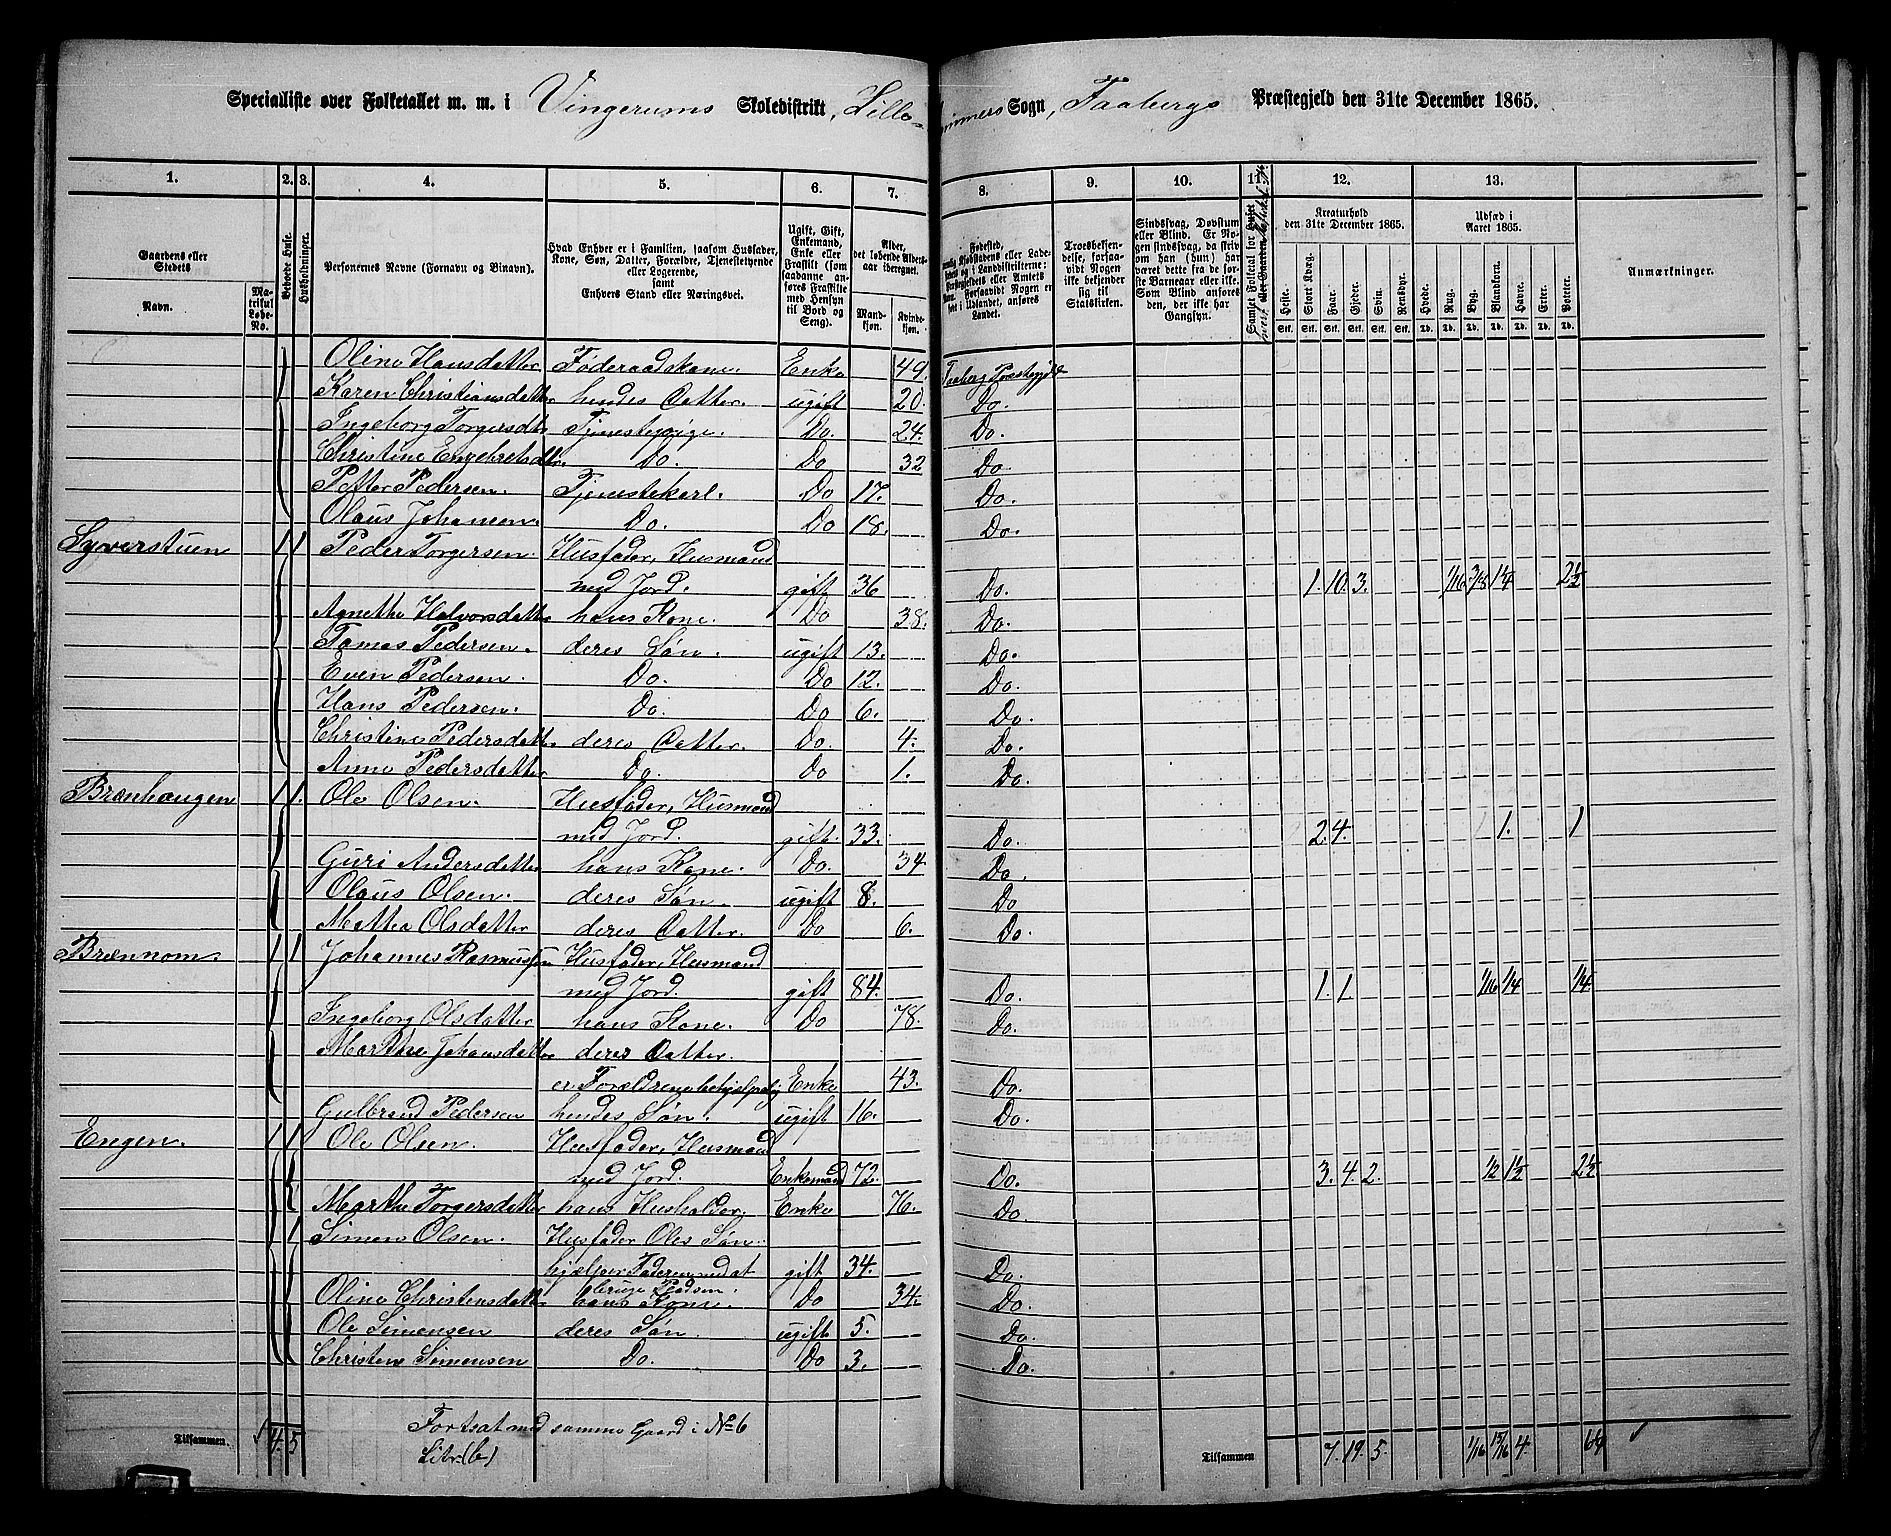 Specialliste over Folketallet m. m. i Vingerums Skoledistrikt, Lille- hammers Sogn, Faabergs Præstegjeld den 31te December 1865.
1. 2. 3. 4. 5. 6. 7. 8. 9. 10. 11. 12. 13.
Gaardens eller Stedets
Navn.
Matrikul Løbe-No.
Beboede Huse.
Husholdninger.
Personernes Navne (Fornavn og Binavn).
Hvad Enhver er i Familien, saasom Husfader, Kone, Søn, Datter, Forældre, Tjenestetyende eller Logerende, samt Enhvers Stand eller Næringsvei.
Ugift, Gift, Enkemand, Enke eller Fraskilt (som saadanne anføres Fraskilte med Hensyn til Bord og Seng).
Alder, det løbende Alders-aar iberegnet.
Mandkjøn.
Kvindekjøn.
Fødested,
Troesbekjendelse, forsaavidt Nogen ikke bekjender sig til Statskirken.
Sindssvag, Døvstum eller Blind. Er Nogen sindssvag, da skrives om han (hun) har været dette fra de første Barneaar eller ikke. Som Blind anføres den, der ikke har Gangsyn.
Kreaturhold den 31te December 1865.
Heste. Stort Kvæg. Faar. Gjeder. Svin. Rensdyr.
Udsæd i Aaret 1865.
Hvede. Rug. Byg. Blandkorn. Havre. Erter. Poteter.
Anmærkninger.
Oline Hansdatter Føderaadskone. Enke 49. Faaberg Præstegjeld
Karen Christiansdatter hendes Datter. ugift 20. Do.
Ingeborg Torgersdtr Tjenestepige. Do. 24. Do.
Christine Engebretsdtr. Do. Do 32 Do.
Petter Pedersen. Tjenestekarl. Do 17. Do.
Olaus Johansen. Do. Do 18. Do.
Syverstuen 1 1 Peder Torgersen. Husfader, Husmand
med Jord. gift 36 Do. 1. 10. 3. 1/16 3/18 1 1/4 2 1/2
Agnethe Halvorsdatter hans Kone. Do 38. Do.
Tomas Pedersen. deres Søn. ugift 13. Do.
Even Pedersen. Do. Do 12. Do.
Hans Pedersen. Do. Do 6. Do.
Christine Pedersdatter deres Datter. Do. 4. Do.
Anne Pedersdatter Do. Do 1. Do.
Brænhaugen 1 1. Ole Olsen. Husfader, Husmand
med Jord. gift. 33. Do. 2. 4. 1. 1
Guri Andersdatter hans Kone. Do. 34 Do.
Olaus Olsen. deres Søn. ugift 8. Do
Mathea Olsdatter deres Datter. Do 6. Do.
Brænnom. 1 1 Johannes Rasmussen Husfader, Husmand
med Jord. gift 84. Do. 1. 1. 1/16 1/4 1/4
Ingeborg Olsdatter hans Kone. Do 78. Do.
Marthe Johansdatter deres Datter.
er Forældrene behjelpelig Enke 43. Do.
Gulbrand Pedersen hendes Søn. ugift 16. Do.
Engen. 1 1 Ole Olsen. Husfader, Husmand
med Jord. Enkemand 72. Do. 3. 4. 2. 1/2 1 1/2 2 1/2
Marthe Torgersdatter hans Husholder. Enke 76. Do.
1 Simen Olsen. Husfader Oles Søn.
hjælper Faderen med at gift 34. Do.
bruge Pladsen.
Oline Christensdatter hans Kone. Do 34. Do.
Ole Simensen deres Søn. ugift 5. Do.
Christen Simensen Do. Do 3. Do.
Fortsat med samme Gaard i No 6
Litr. (b)
Tilsammen. 4. 5 Tilsammen 7. 19. 5. 1/16 15/16 4 6 1/4